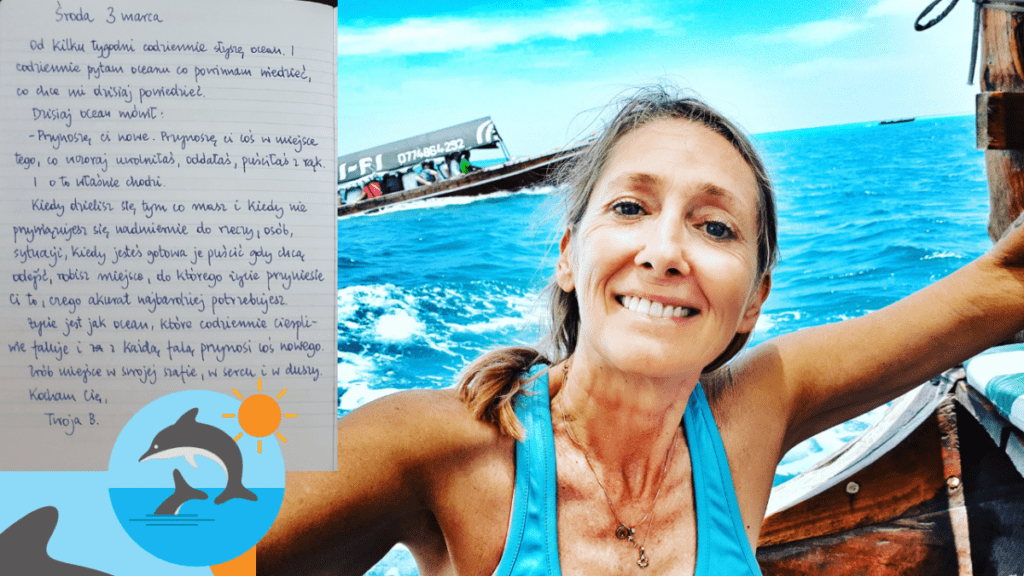 Środa 3 marca
Od kilku tygodni codziennie słyszę ocean. I
codziennie pytam oceanu co powinnam wiedzieć,
co chce mi dzisiaj powiedzieć.
Dzisiaj ocean mówił:
- Przynoszę ci nowe. Przynoszę ci coś w miejsce
tego, co wczoraj uroniłaś, oddałaś, puściłaś z rąk.
I o to właśnie chodzi.
Kiedy dzielisz się tym co masz i kiedy nie
przywiązujesz się nadmiernie do rzeczy, osób,
sytuacji, kiedy jesteś gotowa je puścić gdy chcą
odejść, robisz miejsce, do którego życie przyniesie
Ci to, czego akurat najbardziej potrzebujesz.
Życie jest jak ocean, które codziennie cierpli-
wie faluje i z każdą falą przynosi coś nowego.
Zrób miejsce w swojej szafie, w sercu i w duszy.
Kocham Cię,
Twoja B.
I-FI 0774864292